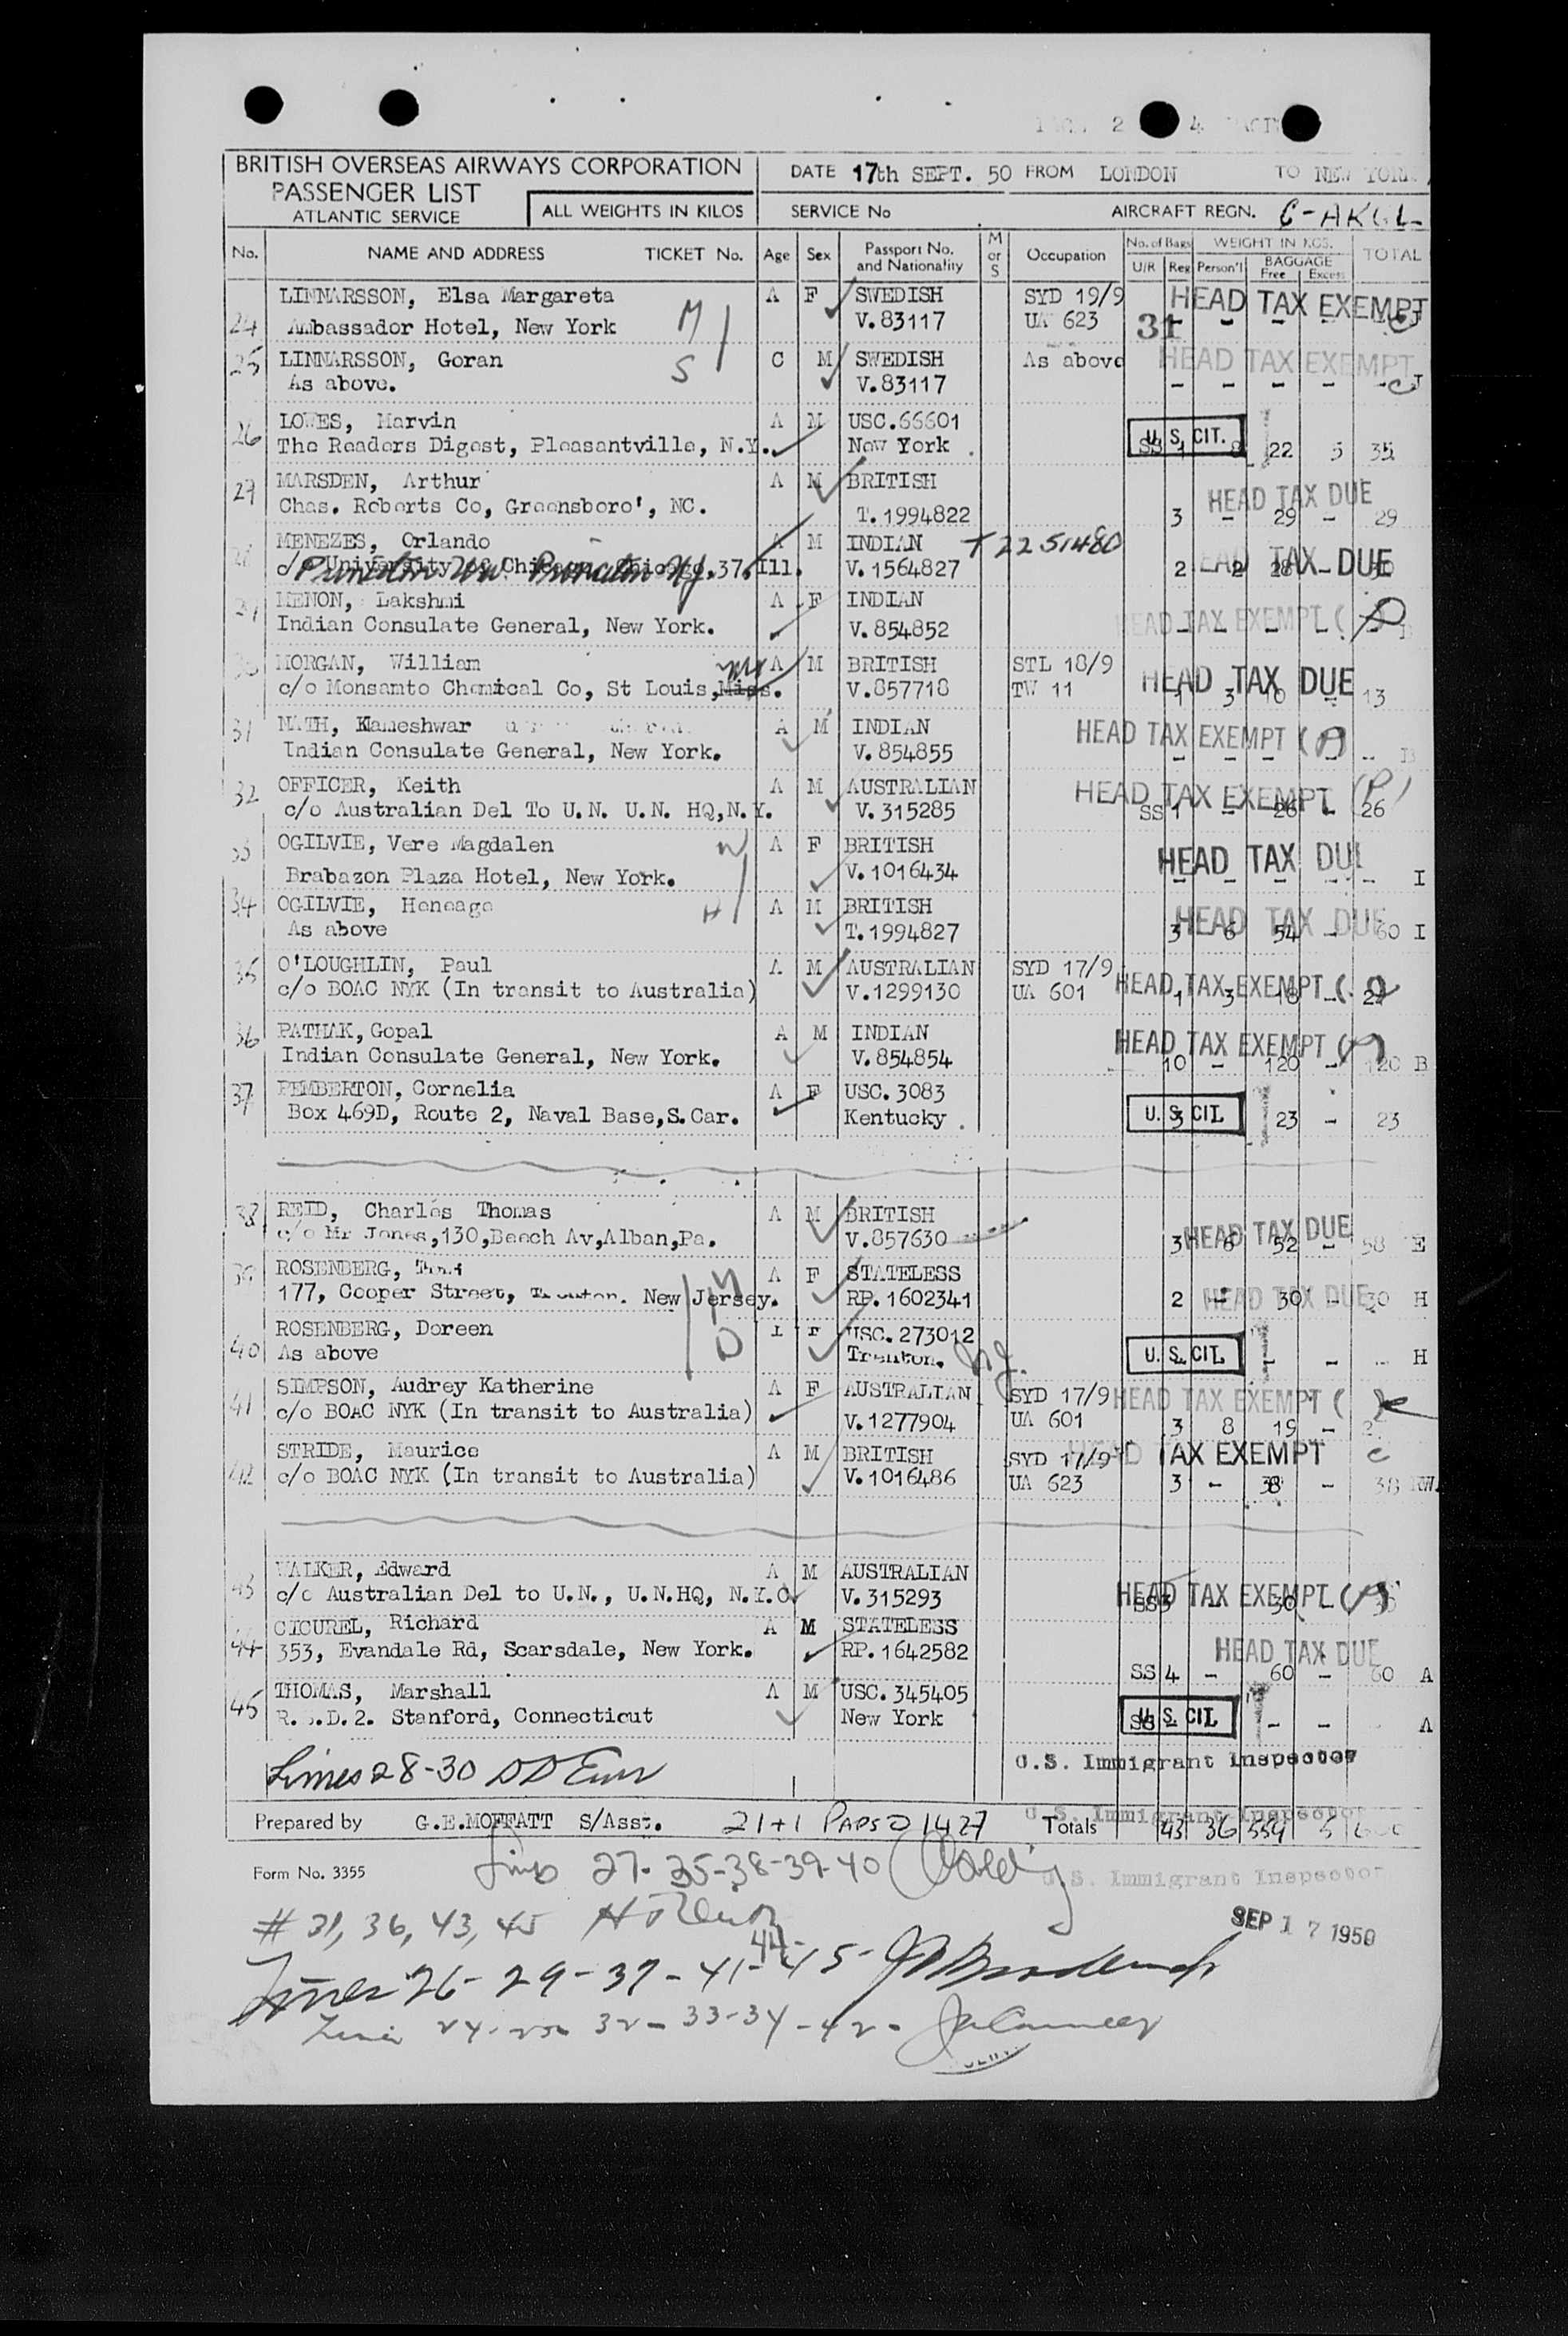 BRITISH OVERSEAS AIRWAYS CORPORATION
PASSENGER LIST
ATLANTIC SERVICE
ALL WEIGHTS IN KILOS
DATE 17th SEPT. 50 FROM LONDON TO NEW YORK
SERVICE No AIRCRAFT REGN.
No. NAME AND ADDRESS TICKET No. Age Sex Passport No. and Nationality M or S Occupation No. of Bags U/R Reg WEIGHT IN KGS. Person'l BAGGAGE Free Excess TOTAL
LINNARSSON, Elsa Margareta M A F SWEDISH SYD 19/9 HEAD TAX EXEMPT
24 Ambassador Hotel, New York V.83117 UA 623 31 - - - - J
25 LINNARSSON, Goran S C M SWEDISH As above HEAD TAX EXEMPT
As above. V.83117 - - - - J
26 LOWES, Marvin A M USC.66601 U.S. CIT.
The Readers Digest, Pleasantville, N.Y. New York SS 1 8 22 5 35
27 MARSDEN, Arthur A M BRITISH HEAD TAX DUE
Chas. Roberts Co, Greensboro', NC. T.1994822 3 - 29 - 29
MENEZES, Orlando A M INDIAN T2251480 HEAD TAX DUE
c/o University of Chicago, Chicago.37.Ill. V.1564827 2 2 28 -
Princeton Uni Princeton NJ
29 MENON, Lakshmi A F INDIAN HEAD TAX EXEMPT (
Indian Consulate General, New York. V.854852 - - - -
MORGAN, William A M BRITISH STL 18/9 HEAD TAX DUE
c/o Monsanto Chemical Co, St Louis, Miss. V.857718 TW 11 1 3 10 - 13
31 NATH, Kameshwar A M INDIAN HEAD TAX EXEMPT (P)
Indian Consulate General, New York. V.854855 - - - - -
32 OFFICER, Keith A M AUSTRALIAN HEAD TAX EXEMPT (P)
c/o Australian Del To U.N. U.N. HQ,N.Y. V.315285 SS 1 - 26 - 26
33 OGILVIE, Vere Magdalen W A F BRITISH HEAD TAX DUE
Brabazon Plaza Hotel, New York. V.1016434 - - - - - I
34 OGILVIE, Heneage H A M BRITISH HEAD TAX DUE
As above T.1994827 3 6 54 - 60 I
35 O'LOUGHLIN, Paul A M AUSTRALIAN SYD 17/9 HEAD TAX EXEMPT (
c/o BOAC NYK (In transit to Australia) V.1299130 UA 601 1 3 18 - 21
36 PATHAK, Gopal A M INDIAN HEAD TAX EXEMPT (P)
Indian Consulate General, New York. V.854854 10 - 120 - 120 B
37 PEMBERTON, Cornelia A F USC.3083 U.S. CIT.
Box 469D, Route 2, Naval Base,S.Car. Kentucky. 3 23 - 23
38 REID, Charles Thomas A M BRITISH HEAD TAX DUE
c/o Mr Jones,130,Beech Av,Alban,Pa. V.857630 3 6 52 - 58 E
39 ROSENBERG, A F STATELESS HEAD TAX DUE
177, Cooper Street, Trenton. New Jersey. RP.1602341 2 - 30 - 30 H
40 ROSENBERG, Doreen D I F USC.273012 U.S. CIT.
As above Trenton. N.J. - - - H
41 SIMPSON, Audrey Katherine A F AUSTRALIAN SYD 17/9 HEAD TAX EXEMPT (
c/o BOAC NYK (In transit to Australia) V.1277904 UA 601 3 8 19 -
42 STRIDE, Maurice A M BRITISH SYD 17/9 HEAD TAX EXEMPT C
c/o BOAC NYK (In transit to Australia) V.1016486 UA 623 3 - 38 - 38 RW.
43 WALKER, Edward A M AUSTRALIAN HEAD TAX EXEMPT (P)
c/o Australian Del to U.N., U.N.HQ, N.Y.C V.315293 SS 3 - 30 -
44 CICUREL, Richard A M STATELESS HEAD TAX DUE
353, Evandale Rd, Scarsdale, New York. RP.1642582 SS 4 - 60 - 60 A
45 THOMAS, Marshall A M USC.345405 U.S. CIT.
R.F.D.2. Stanford, Connecticut New York SS - - A
Lines 28-30
U.S. Immigrant Inspector
Prepared by G.E.MOFFATT S/Asst. 21+1 Totals 43 36 559 5
U.S. Immigrant Inspector
Form No. 3355 Lines 27-35-38-39-40
U.S. Immigrant Inspector
# 31, 36, 43, 45
SEP 17 1950
Lines 26-29-37-41-44-45-
Lines 24-25- 32-33-34-42-